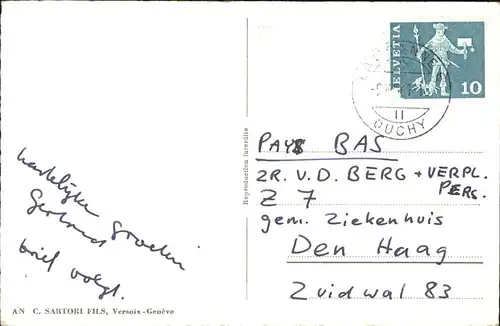 hartelijke
Groeten
Gertrud
brief volgt.
AN C. SARTORI FILS, Versoix-Genève
Reproduction interdite
HELVETIA
10
II
OUCHY
PAYS BAS
ZR. V.D. BERG + VERPL.
PERS.
Z 7
gem. Ziekenhuis
Den Haag
Zuidwal 83